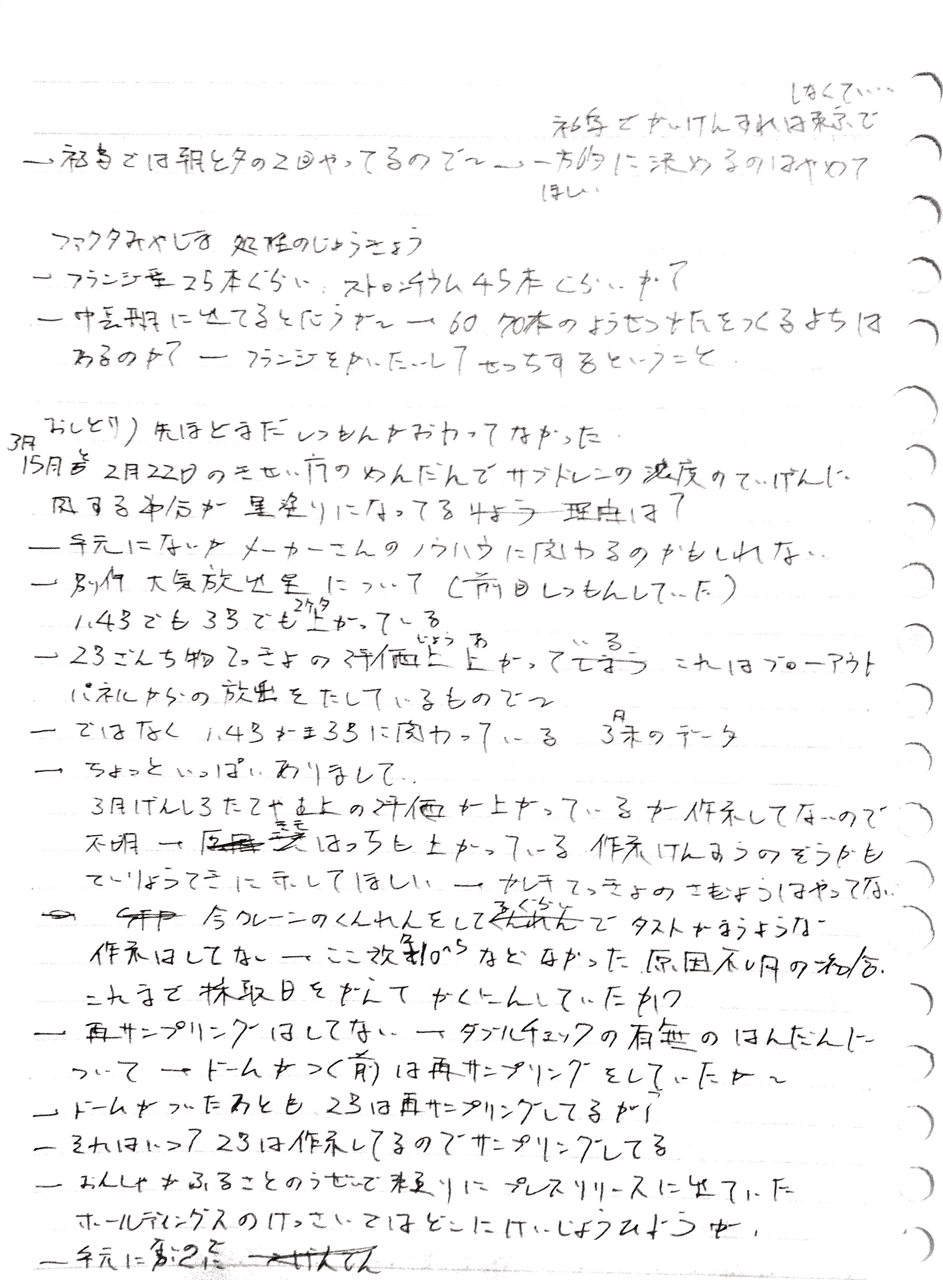 しなくてい…
福島でかいけんすれば東京で
→ 福島では朝と夕の2回やってるので〜 → 一方的に決めるのはやめて
ほしい
ファクタみやじま 処理のじょうきょう
→ フランジ型25本ぐらい. ストロンチウム45本ぐらいか?
→ 中長期に出てるとだうが〜 → 60 70本のようせつがたをつくるよちは
あるのか? → フランジをかいたいしてせっちするということ.
おしどり) 先ほどまだしつもんがおわってなかった.
3月
15月と 2月22日のきせい庁のめんだんでサブドレンの濃度のていげんに
関する部分が黒塗りになってる 理由は?
→ 手元にないがメーカーさんのノウハウに関わるのかもしれない.
→ 別件 大気放出量について (前回しつもんしていた)
1.4号でも3号でも2ケタ上がっている
→ 2号ざんち物てっきょの評価上 上がっている これはブローアウト
パネルからの放出をたしているもので〜
→ ではなく 1.4号か3号に関わっている 3月末のデータ
→ ちょっといっぱいありまして..
3月げんしろたてや上の評価が上がっているが作業してないので
不明 → きそはっちも上がっている 作業けんすうのぞうかも
ていりょうてきに示してほしい → ガレキてっきょのさぎょうはやってない.
→ 今クレーンのくんれんをしてるぐらいで ダストがまうような
作業はしてない → ここ数年10^-5などなかった 原因不明の場合.
これまで採取日をかえてかくにんしていたが?
→ 再サンプリングはしてない → ダブルチェックの有無のはんだんに
ついて → ドームがつく前は再サンプリングをしていたが〜
→ ドームがついたあとも 2号は再サンプリングしてるが?
→ それはいつ? 2号は作業してるのでサンプリングしてる
→ おんしゃがふるさとのうぜいで プレスリリースに出ていた
ホールディングスのけっさいではどこにけいじょうひようか.
→ 手元に